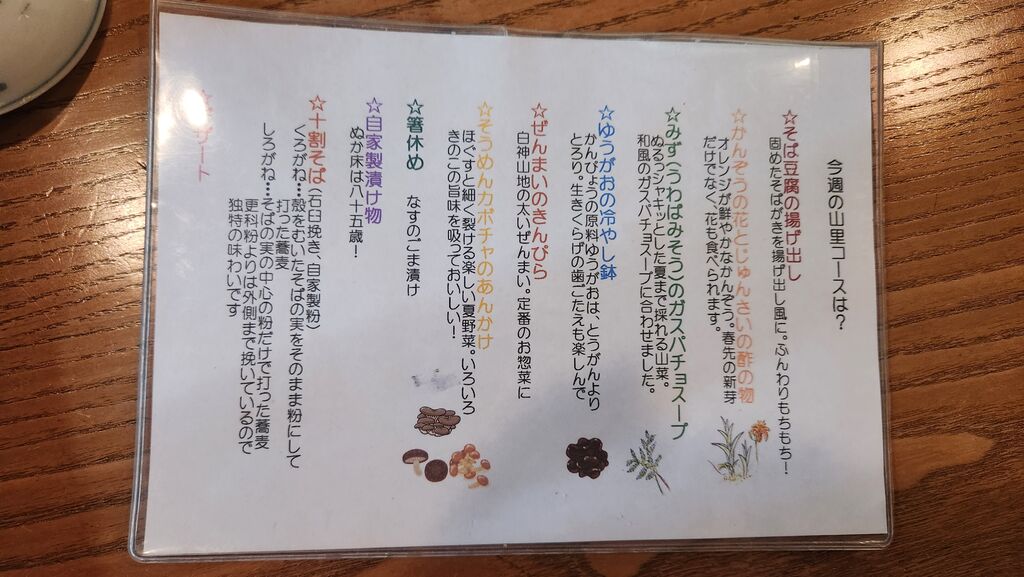 今週の山里コースは？
☆そば豆腐の揚げ出し
固めたそばがきを揚げ出し風に。ふんわりもちもち！
☆かんぞうの花とじゅんさいの酢の物
オレンジが鮮やかなかんぞう。春先の新芽
だけでなく、花も食べられます。
☆みず（うわばみそう）のガスパチョスープ
ぬるっシャキッとした夏まで採れる山菜。
和風のガスパチョスープに合わせました。
☆ゆうがおの冷やし鉢
かんぴょうの原料ゆうがおは、とうがんより
とろり。生きくらげの歯ごたえも楽しんで
☆ぜんまいのきんぴら
白神山地の太いぜんまい。定番のお惣菜に
☆そうめんカボチャのあんかけ
ほぐすと細く裂ける楽しい夏野菜。いろいろ
きのこの旨味を吸っておいしい！
☆箸休め　なすのごま漬け
☆自家製漬け物
ぬか床は八十五歳！
☆十割そば（石臼挽き、自家製粉）
くろがね…殻をむいたそばの実をそのまま粉にして
打った蕎麦
しろがね…そばの実の中心の粉だけで打った蕎麦
更科粉よりは外側まで挽いているので
独特の味わいです
☆デザート